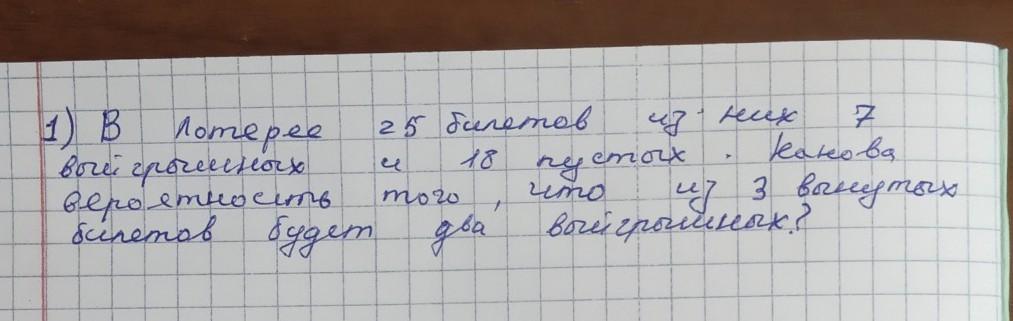 1) В Лотерее 25 билетов из них 7
выйгрышных и 18 пустых. Какова
вероятность того, что из 3 вынутых
билетов будет два выйгрышных?